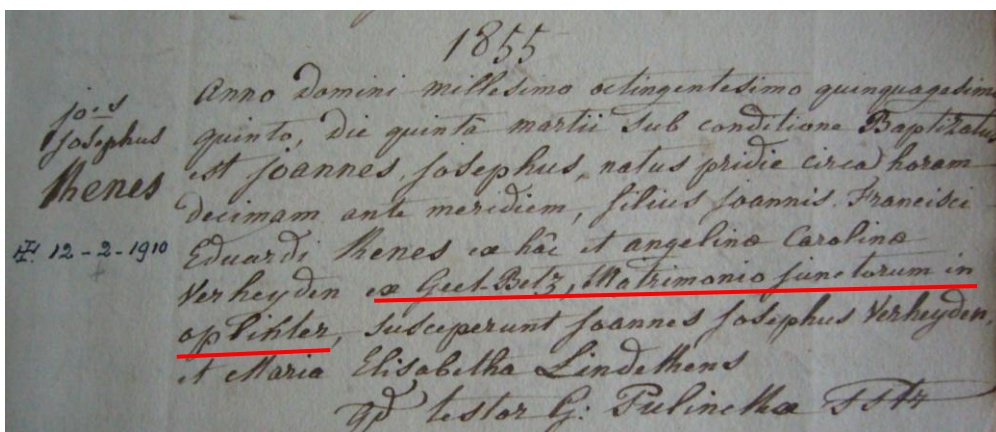 1855
jois
Josephus
Renes
12-2-1910
Anno Domini millesimo octingentesimo quinquagesimo
quinto, die quintâ martii sub conditione Baptizatus
est joannes, josephus, natus pridie circa horam
decimam ante meridiem, filius joannis Francisci
Eduardi Renes ex hâc et angelinæ Carolinæ
Verheyden ex Geet-Betz, Matrimonio junctorum in
oplinter, susceperunt joannes josephus Verheyden,
et Maria Elisabetha Lindekkens
qd testor G: